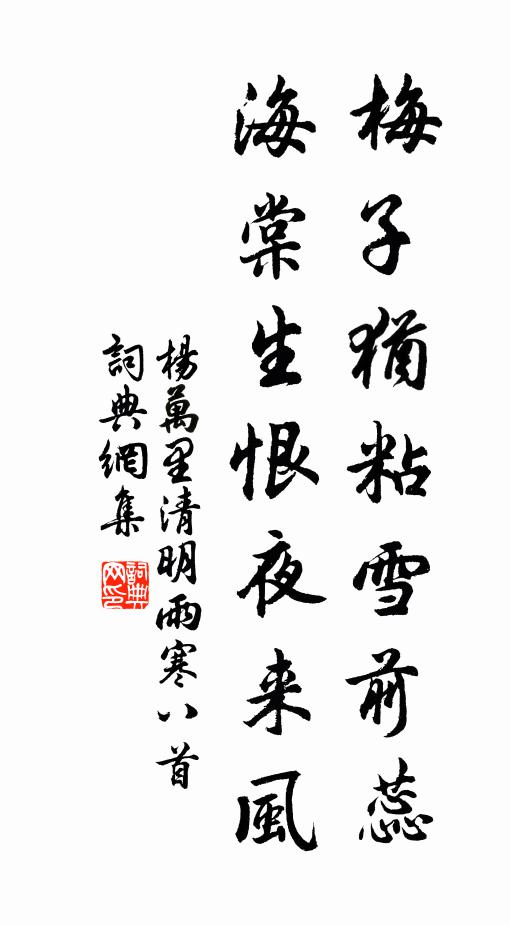 梅子猶粘雪前蕊
海棠生恨夜来風
楊萬里清明雨寒八首
詞典網集
詞典网印